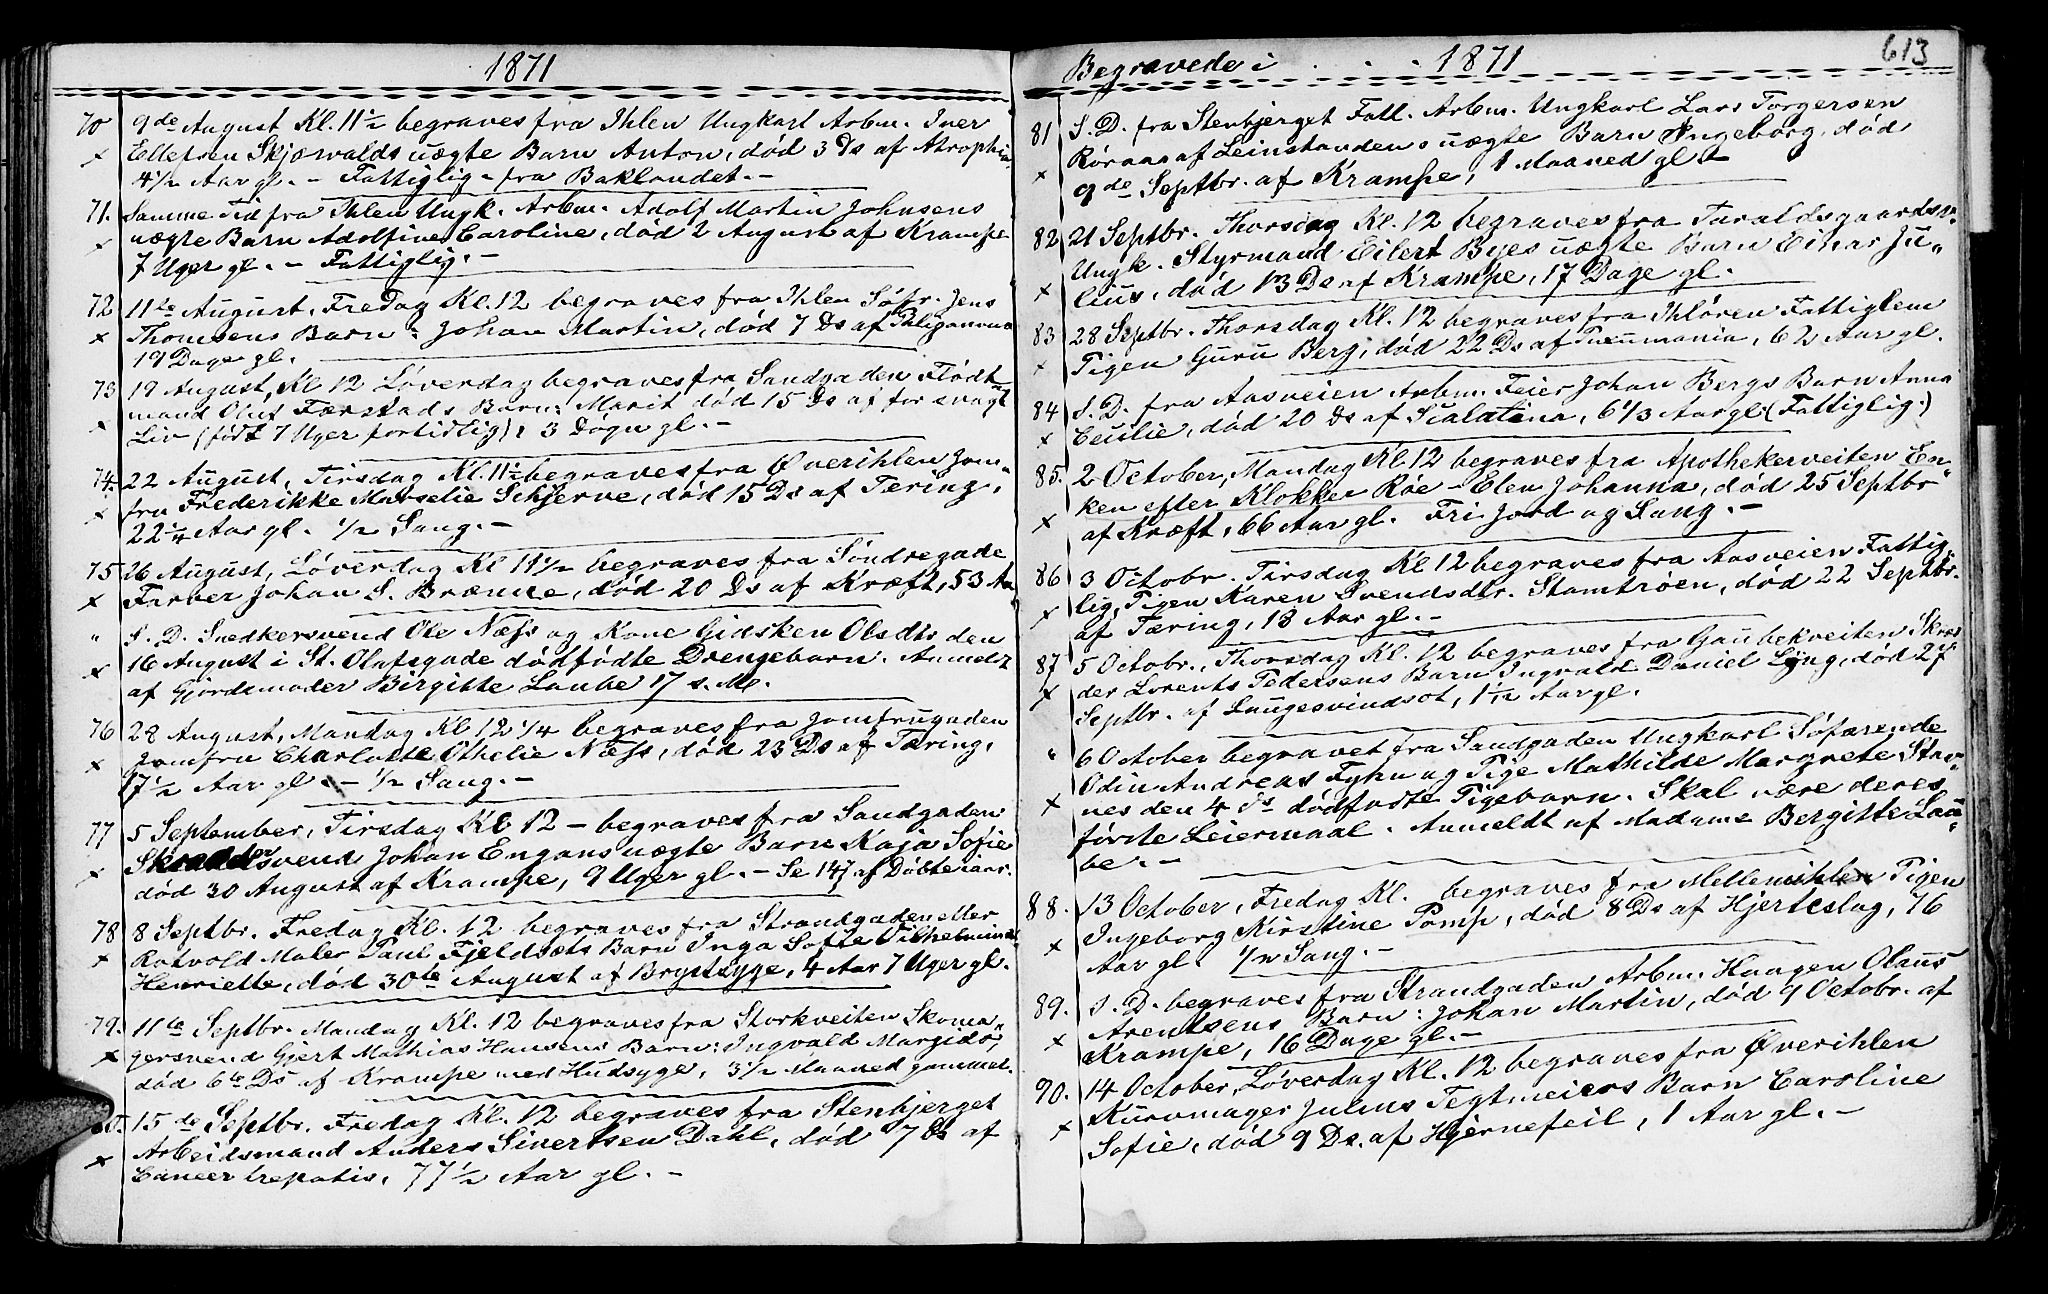 1871
70 9de August Kl. 11½ begraves fra Ihlen Ungkarl Arbm. Iver
Ellefsen Skjøwalds uægte Barn Anton, død 3 Ds af Atrophia
4½ Aar gl. - Fattiglig - fra Baklandet. -
71. Samme Tid fra Ihlen Ungk. Arbm. Adolf Martin Johnsens
uægte Barn Adolfine Caroline, død 2 August af Krampe
7 Uger gl. - Fattiglig. -
72 11te August, Fredag Kl. 12 begraves fra Ihlen Søfr. Jens
Thomsens Barn: Johan Martin, død 7 Ds af
19 Dage gl.
73 19 August, Kl 12 Løverdag begraves fra Sandgaden Flødt-
mand Oluf Færstads Barn: Marit død 15 Ds af for svagt
Liv (født 7 Uger fortidlig), 3 Døgn gl. -
74. 22 August, Tirsdag Kl. 11½ begraves fra Øverihlen Jom-
fru Frederikke Marselie Schjerve, død 15 Ds af Tæring,
22¼ Aar gl. ½ Sang. -
75 26 August, Løverdag Kl 11½ begraves fra Søndregade
Farver Johan S. Brænne, død 20 Ds af Kræft, 53 Aar
" S. D. Snedkersvend Ole Næss og Kone Gidsken Olsdtr den
16 August i St. Olafsgade dødfødte Drengebarn. Anmeldt
af Gjordemoder Birgitte Laube 17 s. M.
76 28 August, Mandag Kl 12¼ begraves fra Jomfrugaden
Jomfru Charlotte Othelie Næss, død 23 Ds af Tæring,
17½ Aar gl. - ½ Sang. -
77 5 September, Tirsdag Kl 12 - begraves fra Sandgaden
Skræddersvend Johan Engans uægte Barn Kaja Sofie
død 30 August af Krampe, 9 Uger gl. - Se 147 af Døbte iaar.
78 8 Septbr. Fredag Kl. 12 begraves fra Strandgaden efter
Rotvold Maler Paul Fjeldsets Barn Inga Sofie Vilhelmine
Henriette, død 30te August af Brystsyge, 4 Aar 7 Uger gl.
79. 11te Septbr. Mandag Kl. 12 begraves fra Storkveiten Skoma-
gersvend Gjert Mathias Hansens Barn: Ingvald Margido,
død 6te Ds af Krampe med Hudsyge, 3½ Maaned gammel.
80. 15de Septbr. Fredag Kl. 12 begraves fra Stenbjerget
Arbeidsmand Anders Sivertsen Dahl, død 7 Ds af
Cancer hepatis, 77½ Aar gl. -
Begravede i . . . . 1871
613
81 S. D. fra Stenbjerget Fatt. Arbm. Ungkarl Lars Torgersen
Røraas af Leinstrandens uægte Barn Ingeborg, død
9de Septbr. af Krampe, 1 Maaned gl -
82 21 Septbr. Thorsdag Kl. 12 begraves fra Taraldsgaardsv.
Ungk. Styrmand Eilert Byes uægte Barn Einar Ju-
lius, død 13 Ds af Krampe, 17 Dage gl.
83 28 Septbr. Thorsdag Kl. 12 begraves fra Ihløren Fattiglem
Pigen Guru Berg, død 22 Ds af 62 Aar gl.
84 S. D. fra Aasveien Arbm. Feier Johan Bergs Barn Anna
Cecilie, død 20 Ds af Scalatina, 6 1/3 Aar gl. (Fattiglig.)
85. 2 October, Mandag Kl. 12 begraves fra Apothekerveiten En-
ken efter Klokker Røe - Elen Johanna, død 25 Septbr
af Kræft, 66 Aar gl. Fri Jord og Sang. -
86 3 Octobr. Tirsdag Kl 12 begraves fra Aasveien Fattig-
lig, Pigen Karen Svendsdtr. Stamtrøen, død 22 Septbr.
af Tæring, 18 Aar gl. -
87 5 Octobr., Thorsdag Kl. 12 begraves fra Gaubekveiten Skræd-
der Lorents Pedersens Barn Ingvald Daniel Lyng, død 27
Septbr. af Lungesvindsot, 1½ Aar gl.
" 6 October begravet fra Sandgaden Ungkarl Søfarende
Odin Andreas Fyhn og Pige Mathilde Margrete Stav-
nes den 4 ds dødfødte Pigebarn. Skal være deres
første Leiermaal. Anmeldt af Madame Bergitte Lau-
be. -
88. 13 October, Fredag Kl. begraves fra Mellemihlen Pigen
Ingeborg Kirstine Pomp, død 8 Ds af Hjerteslag, 76
Aar gl. ½ Sang. -
89. S. D. begraves fra Strandgaden Arbm. Haagen Olaus
Arentsens Barn: Johan Martin, død 9 Octobr. af
Krampe, 16 Dage gl. -
90. 14 October, Løverdag Kl. 12 begraves fra Øverihlen
Kurvmager Julius Tegtmeiers Barn Caroline
Sofie, død 9 Ds. af Hjernefeil, 1 Aar gl. -